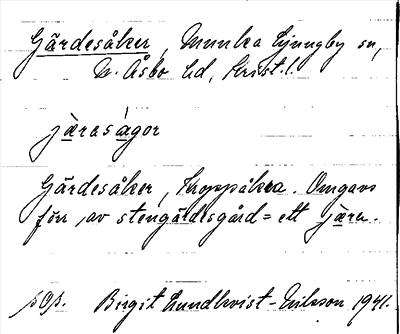 Gärdesåker, Munka Ljungby sn,
N. Åsbo hd, Krist. l.
jæras ágor
Gärdesåker, kroppåkra. Omgavs
förr av stengärdesgård = ett jæra.
pop. Birgit Lundkvist-Eriksson 1941.